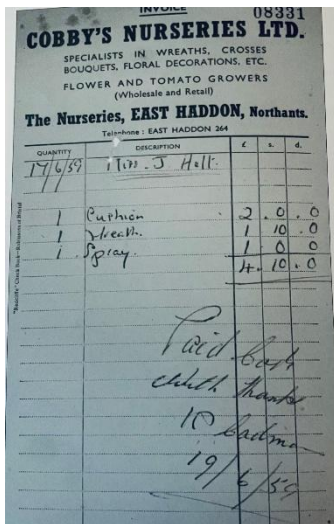 INVOICE 08331
COBBY'S NURSERIES LTD.
SPECIALISTS IN WREATHS, CROSSES
BOUQUETS, FLORAL DECORATIONS, ETC.
FLOWER AND TOMATO GROWERS
(Wholesale and Retail)
The Nurseries, EAST HADDON, Northants.
Telephone : EAST HADDON 264
QUANTITY DESCRIPTION £ s. d.
17/6/59 Miss. J Hall.
1 Cushion 2 . 0 . 0
1 Wreath. 1 10 . 0
1 Spray. 1 0 0
4 . 10 . 0
Paid Cash
With Thanks
19/6/59